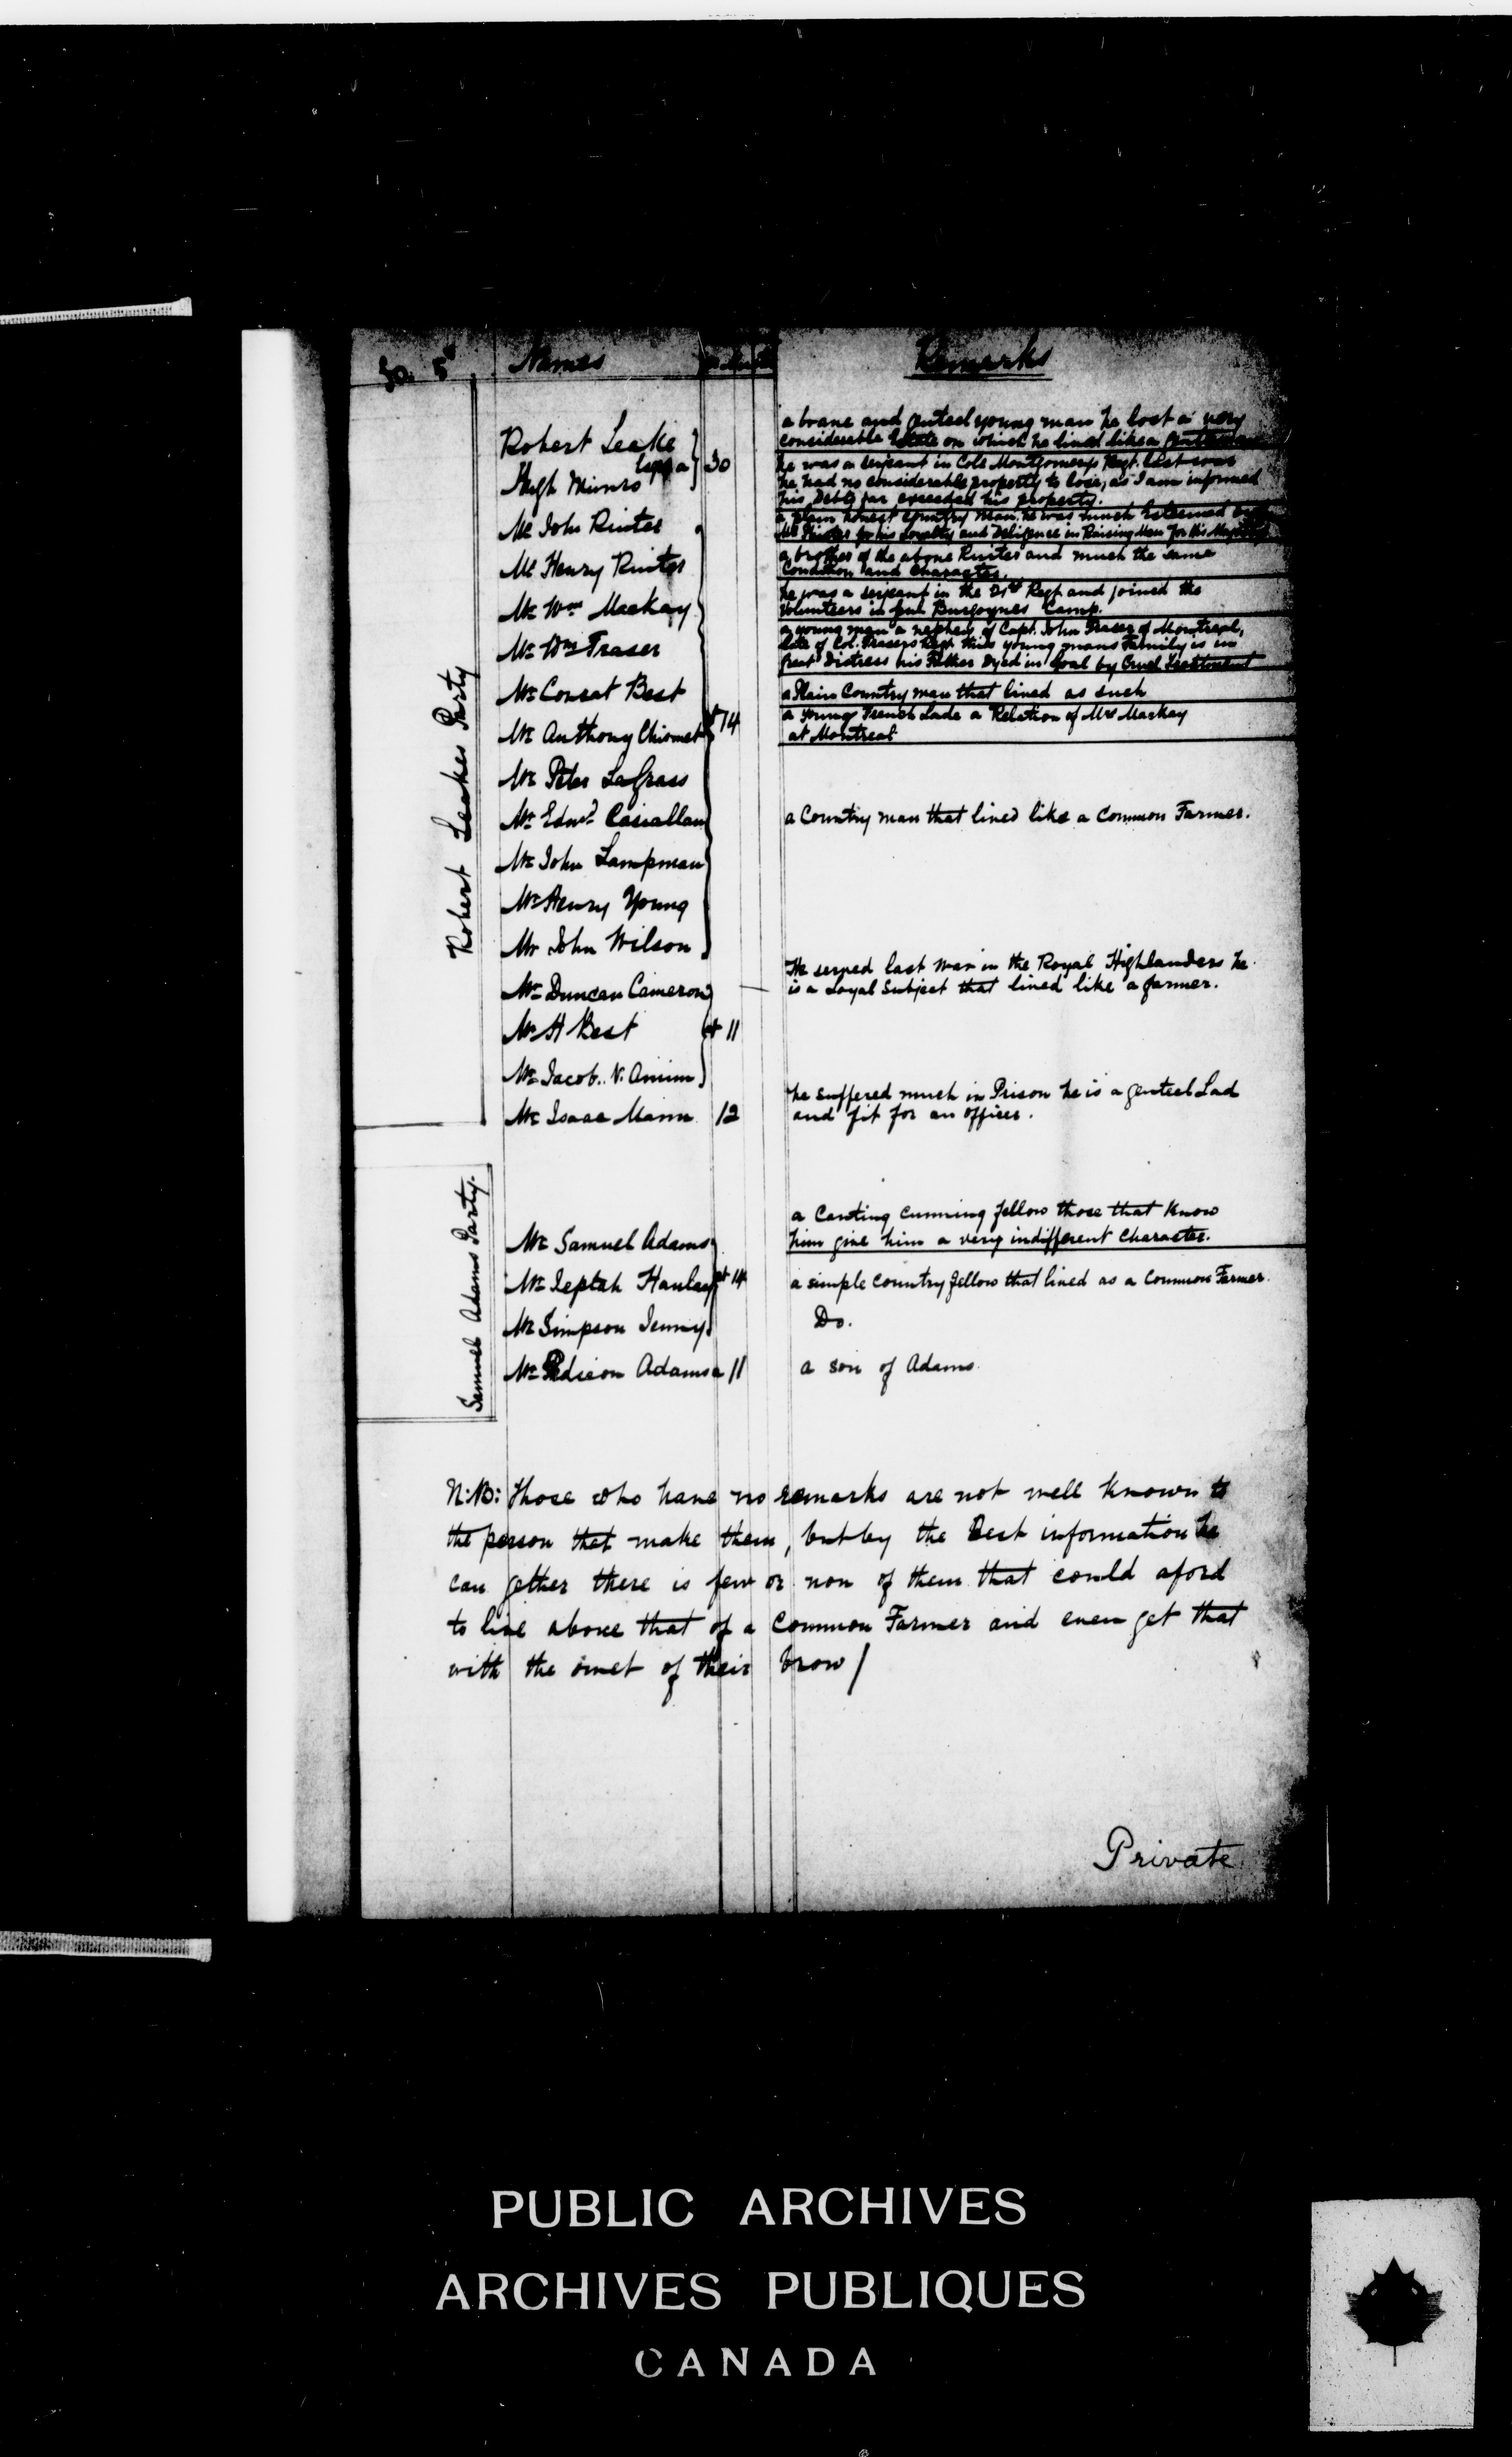 Names Remarks
Robert Leakes Party
Robert Leake a brave and genteel young man he lost a very
considerable Estate on which he lived like a
Hugh Munro 30 he was a serjeant in Cols Montgomerys Regt. last
he had no considerable property to lose, as I am informed
his Debts far exceeded his property.
Mr John Ruiter a plain honest Country man, he was much Esteemed
for his Loyalty and Deligence in Raising Men for His
Mr Henry Ruiter a brother of the above Ruiter and much the same
Condition and Character.
Mr Wm Mackay he was a serjeant in the 21st Regt and joined the
Volunteers in Genl Burgoynes Camp.
Mr Wm Fraser a young man a nephew of Capt. John Fraser of Montreal,
late of Col. Frasers Regt this young mans Family is in
great Distress his Father Dyed in Goal by Cruel Treatment
Mr Conrat Best a Plain Country man that lived as such
Mr Anthony Chiomet at 14 a young French Lade a Relation of Mrs Mackay
at Montreal
Mr Peter LaGrass
Mr Edwd Casiallan a Country man that lived like a Common Farmer.
Mr John Lampman
Mr Henry Young
Mr John Wilson
Mr Duncan Cameron He served last War in the Royal Highlanders he
is a Loyal Subject that lived like a farmer.
Mr H Best at 11
Mr Jacob. V. Arnim
Mr Isaac Mann 12 he suffered much in Prison he is a genteel Lad
and fit for an officer.
Samuel Adams Party.
Mr Samuel Adams a Canting cunning fellow those that know
him give him a very indifferent Character.
Mr Jeptah Hanley at 14 a simple Country fellow that lived as a Common Farmer.
Mr Simpson Jenny Do.
Mr Adams a 11 a son of Adams.
N:B: Those who have no remarks are not well known to
the person that make them, but by the Best information he
can gether there is few or non of them that could aford
to live above that of a Common Farmer and even get that
with the swet of their brow/
Private
PUBLIC ARCHIVES
ARCHIVES PUBLIQUES
CANADA